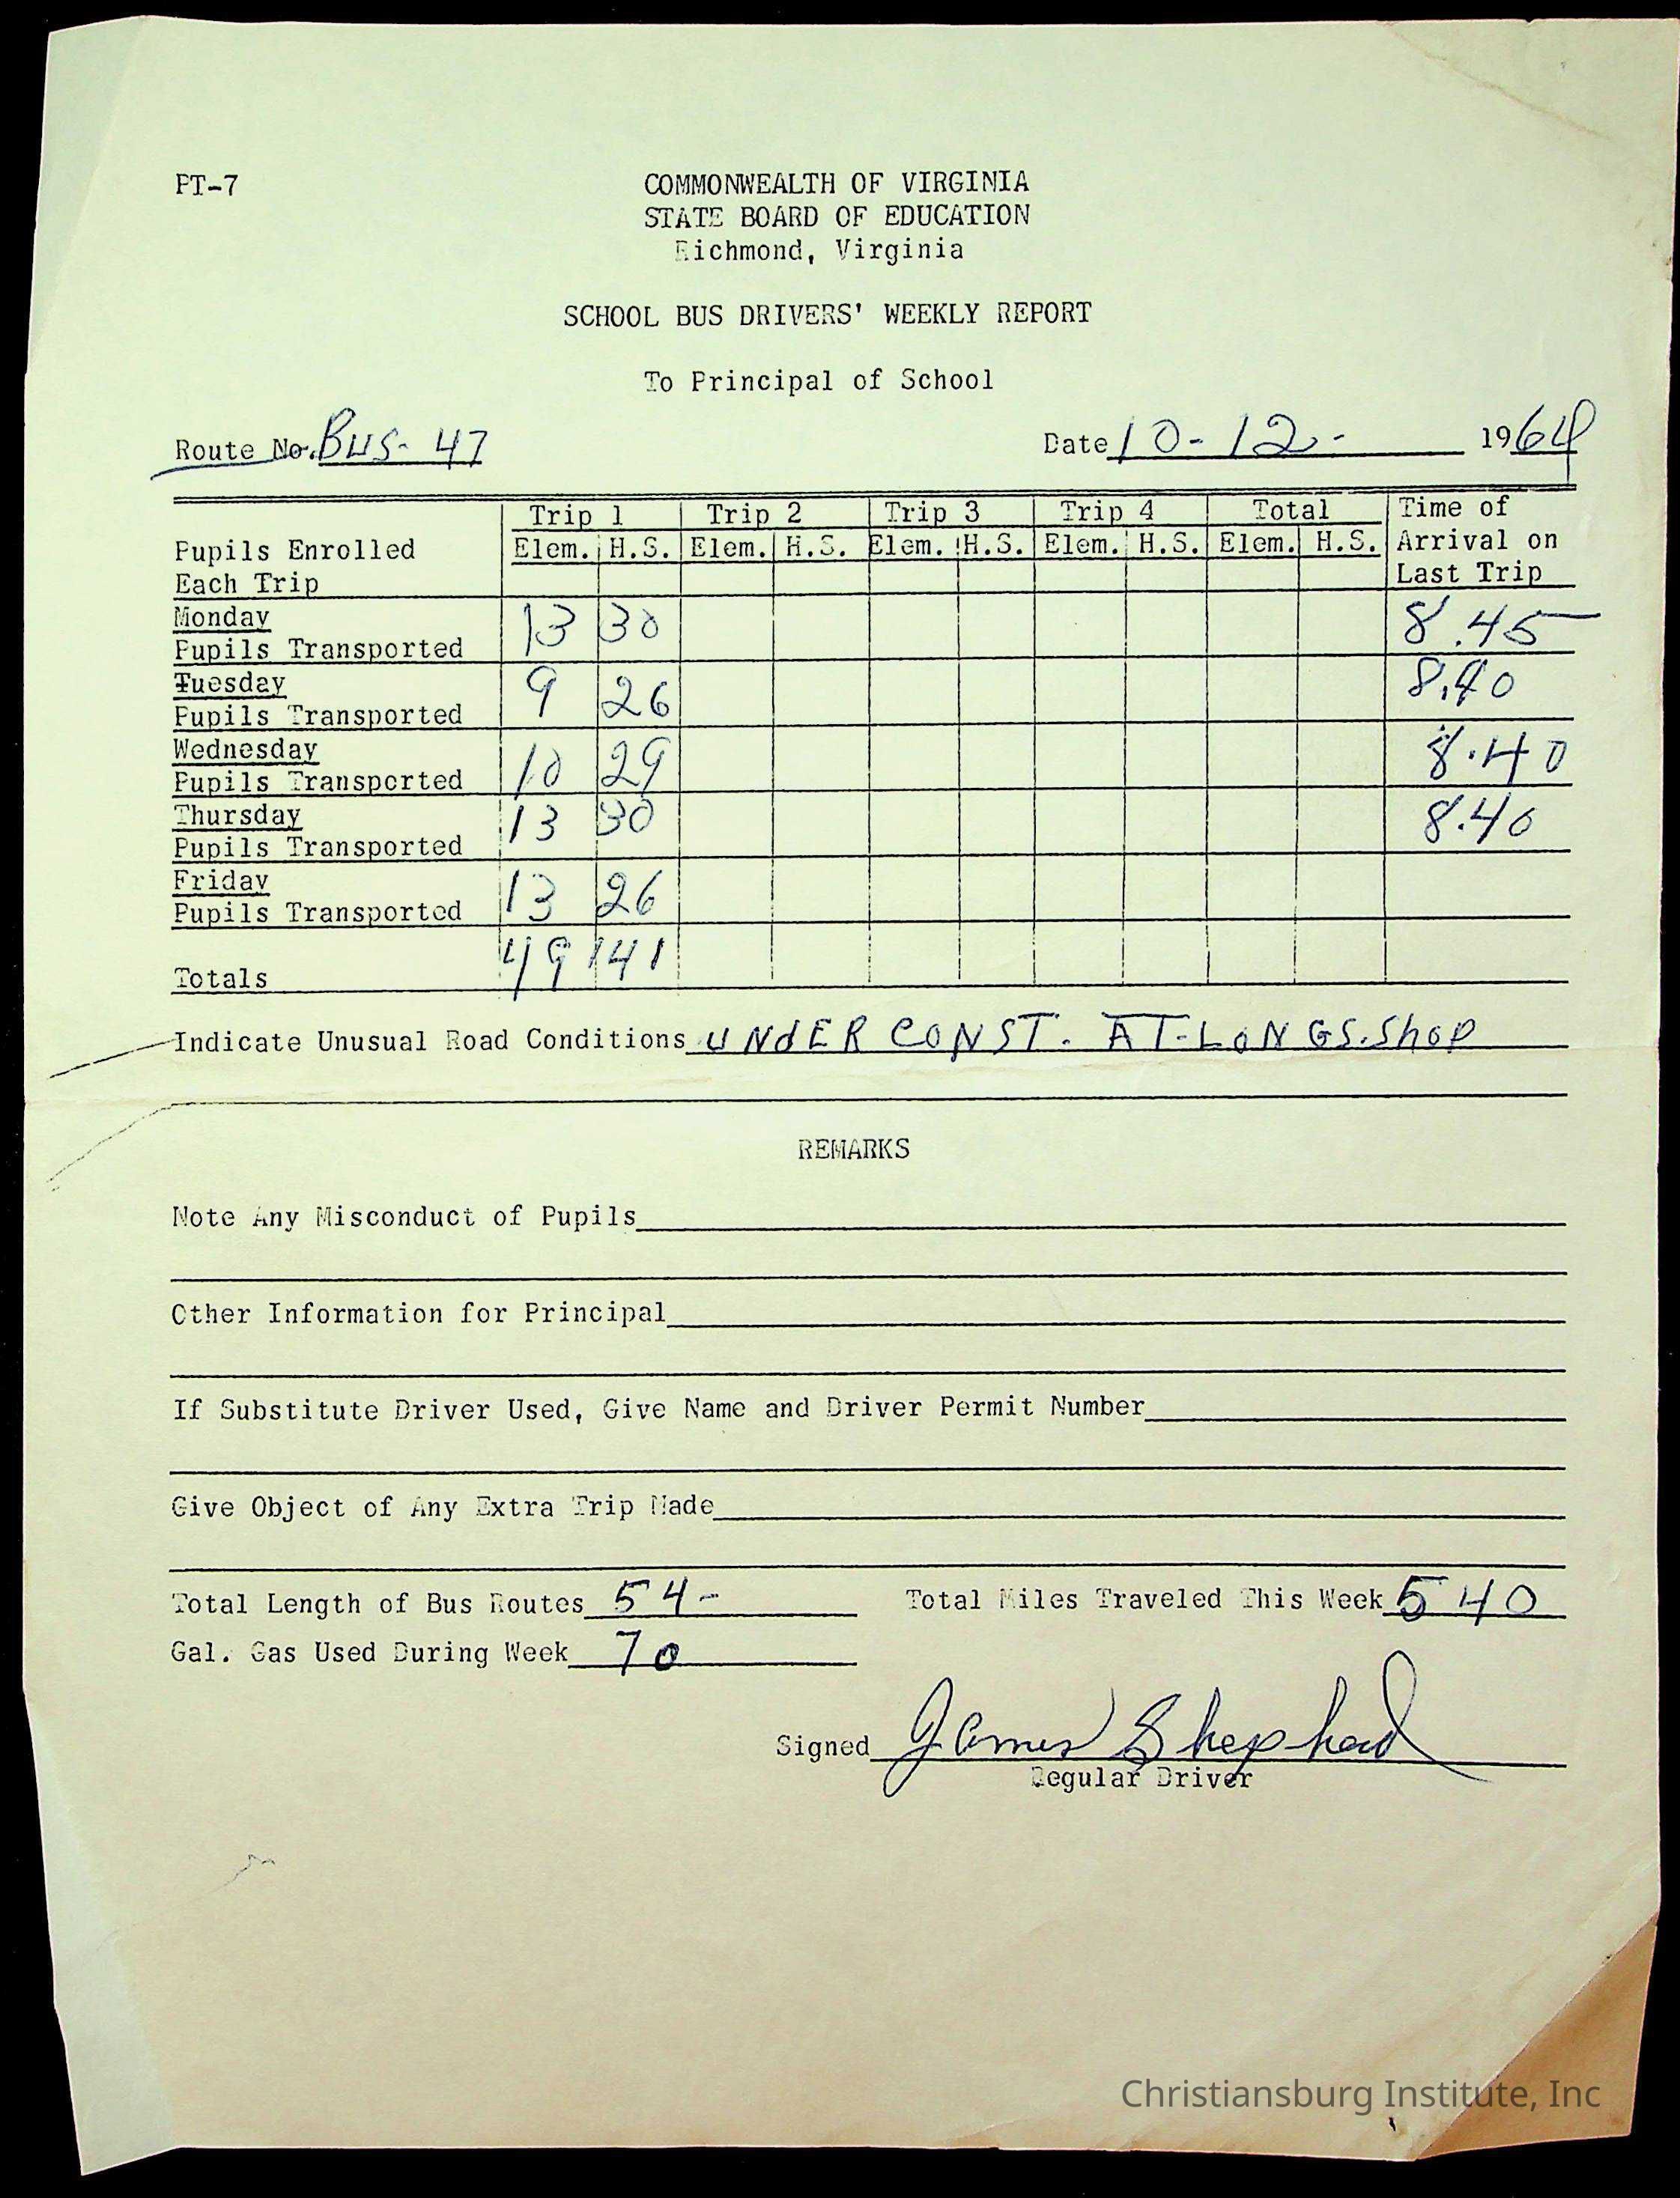 PT-7
COMMONWEALTH OF VIRGINIA
STATE BOARD OF EDUCATION
Richmond, Virginia
SCHOOL BUS DRIVERS' WEEKLY REPORT
To Principal of School
Route No. BUS- 47 Date 10-12- 1964
Trip 1 Trip 2 Trip 3 Trip 4 Total Time of
Pupils Enrolled Elem. H.S. Elem. H.S. Elem. H.S. Elem. H.S. Elem. H.S. Arrival on
Each Trip Last Trip
Monday
Pupils Transported 13 30 8.45
Tuesday
Pupils Transported 9 26 8.40
Wednesday
Pupils Transported 10 29 8.40
Thursday
Pupils Transported 13 30 8.40
Friday
Pupils Transported 13 26
Totals 49 141
Indicate Unusual Road Conditions UNdER CONST. AT-LONGS.ShOP
REMARKS
Note Any Misconduct of Pupils
Other Information for Principal
If Substitute Driver Used, Give Name and Driver Permit Number
Give Object of Any Extra Trip Made
Total Length of Bus Routes 54- Total Miles Traveled This Week 540
Gal. Gas Used During Week 70
Signed James Shephad
Regular Driver
Christiansburg Institute, Inc